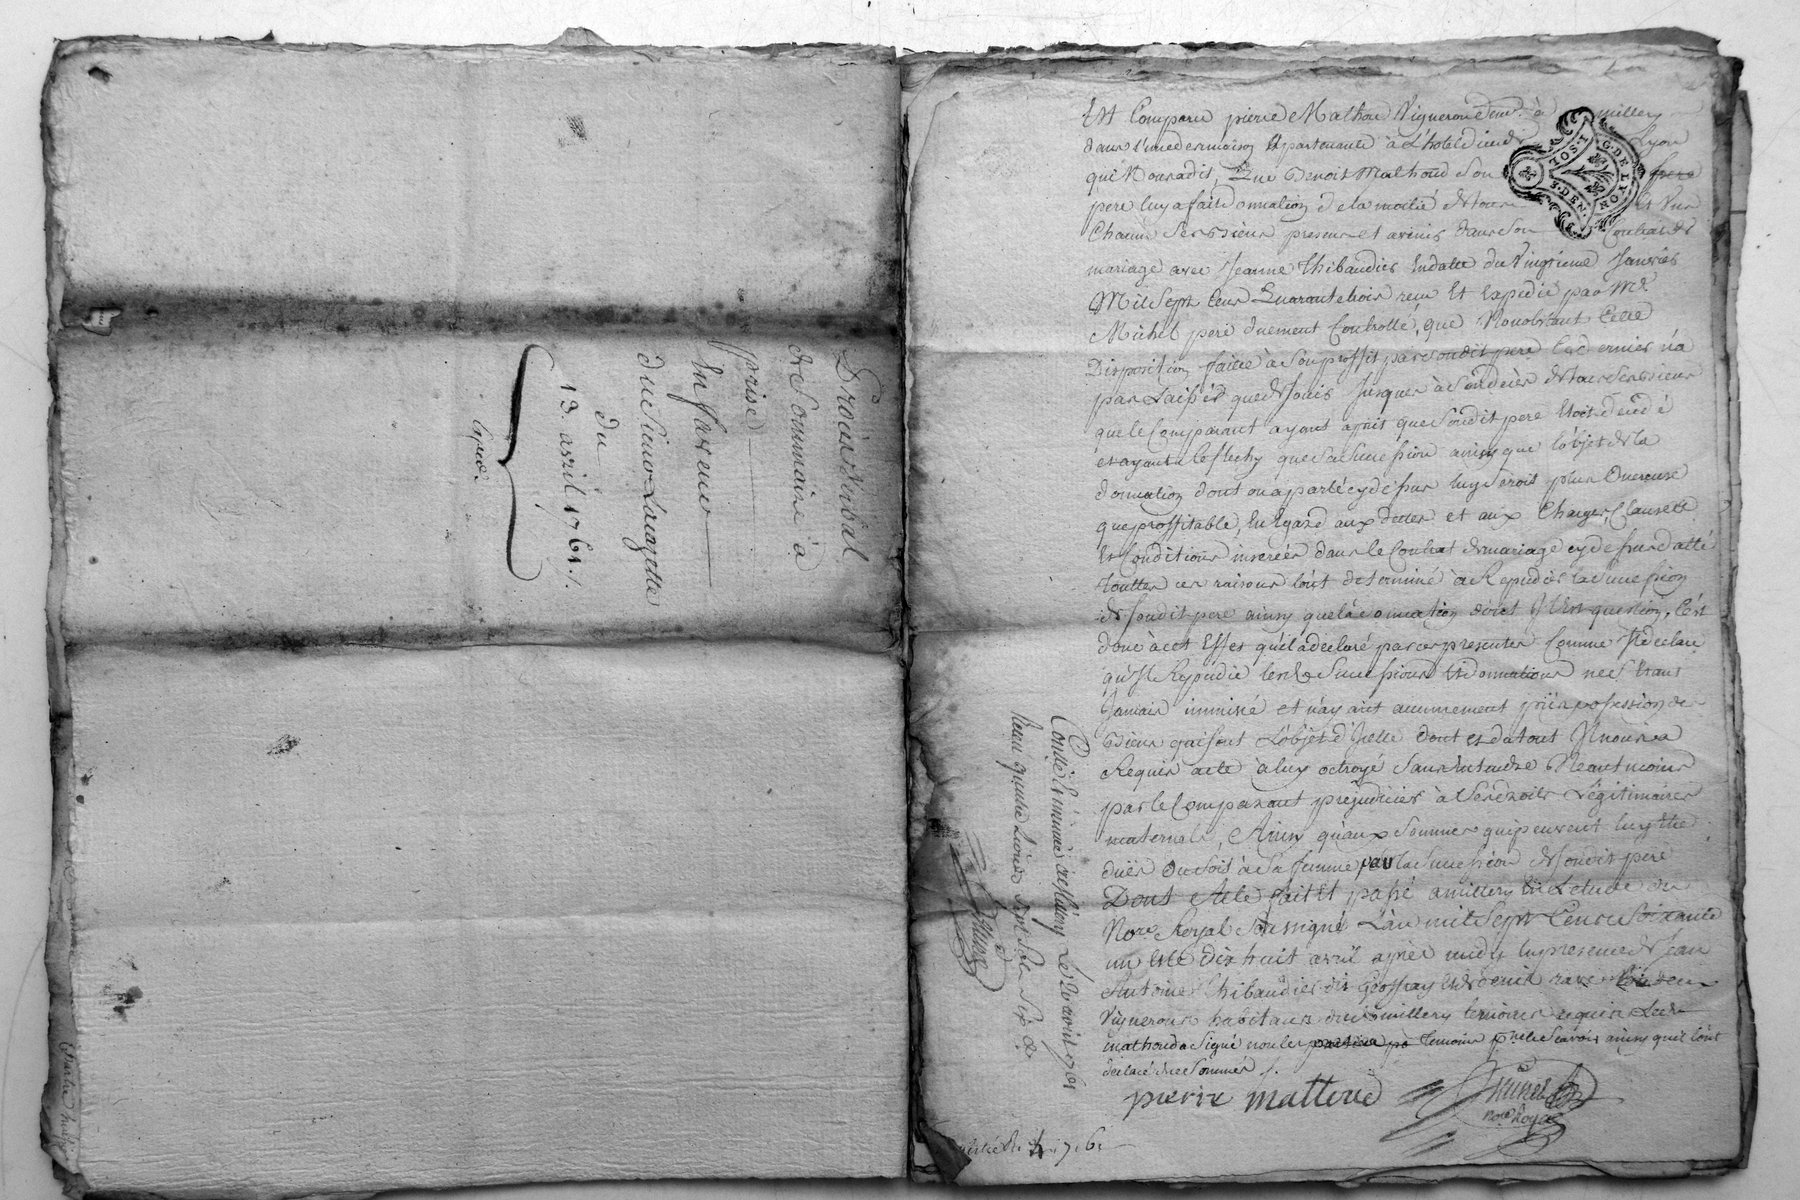 Procès verbal
de Sommaire à
prise
En faveur
du Sieur Lauzette
du
13. avril 1761.
Est Comparu pierre Mathou Vigneron dem.t à millery
dans l'une des maisons Apartenante à L'hotel dieu de Lyon
qui Nous a dit, Que Benoit Mathoud Son frere
pere luy a fait donnation de la moitié de tous et Un
Chacuns Ses biens presens et avenir dans Son Contrat de
mariage avec Jeanne Thibaudier En datte du Vingtieme Janvier
Mil Sept Cens Quarante trois reçu Et Expedié par M.e
Michel pere duement Controllé, que Nonobstant Cette
Disposition faitte à Son proffit par Son dit pere Ce dernier n'a
pas Laissé que de Jouir Jusques à Son decès de tous Ses biens
que le Comparant ayant apris que Son dit pere Etoit decedé
et ayant reflechy que Sa Succession ainsy que l'objet de la
donnation dont on a parlé cy dessus luy Seroit plus Onereuse
que proffitable, En Egard aux dettes et aux Charges, Clauses
Et Conditions inserées dans le Contrat de mariage cy dessus datté
Touttes ces raisons l'ont determiné à Repudier la Succession
de Son dit pere ainsy que la donnation dont Il Est question, C'est
donc à cet Effet qu'il a declaré par ces presentes Comme Il declare
qu'Il Repudie les Successions Et donnations ne S'Etant
Jamais immiscé et n'ayant aucunement pris possession des
Biens qui font L'objet d'Icelle dont et du tout Il nous a
Requis acte à luy octroyé Sans Entendre Neantmoins
par le Comparant prejudicier à Ses droits Légitimaires
maternels, Ainsy qu'aux Sommes qui peuvent luy etre
duës Ou Soit à Sa femme par la Succession de Son dit pere
Dont Acte fait Et passé a millery En L'etude du
No.re Royal Soussigné L'an mil Sept Cens Soixante
un Et le dix huit avril après midy En presence de Jean
Antoine Thibaudier dit Geoffray Et de denis rave
Vignerons habitans dud. millery temoins requis Led.
mathoud a Signé non les temoins p.r ne le Sçavoir ainsy qu'il l'ont
declaré de ce Sommés
pierre mattoud
No.re Royal
Contrôlé
Le 20 avril 1761
Reçu quatre Livres
G. DE LYON